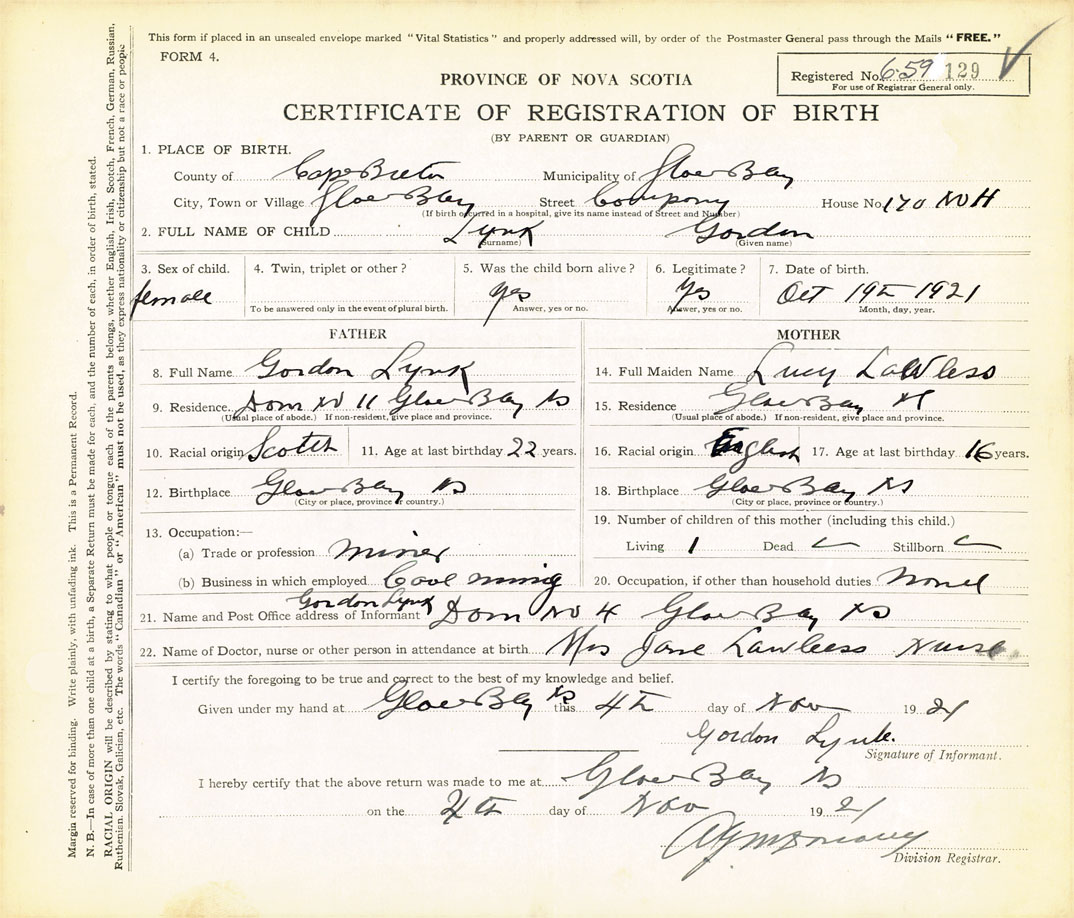 This form if placed in an unsealed envelope marked "Vital Statistics" and properly addressed will, by order of the Postmaster General pass through the Mails "FREE."
FORM 4.
Registered No. 659 129
For use of Registrar General only.
PROVINCE OF NOVA SCOTIA
CERTIFICATE OF REGISTRATION OF BIRTH
(BY PARENT OR GUARDIAN)
1. PLACE OF BIRTH.
County of Cape Breton Municipality of Glace Bay
City, Town or Village Glace Bay Street Company House No. 170 No 4
(If birth occurred in a hospital, give its name instead of Street and Number)
2. FULL NAME OF CHILD Lynk Gordon
(Surname) (Given name)
3. Sex of child. 4. Twin, triplet or other? 5. Was the child born alive? 6. Legitimate? 7. Date of birth.
female yes yes Oct 19th 1921
To be answered only in the event of plural birth. Answer, yes or no. Answer, yes or no. Month, day, year.
FATHER
8. Full Name Gordon Lynk
9. Residence Dom No 11 Glace Bay NS
(Usual place of abode.) If non-resident, give place and province.
10. Racial origin Scotch 11. Age at last birthday 22 years.
12. Birthplace Glace Bay NS
(City or place, province or country.)
13. Occupation:—
(a) Trade or profession miner
(b) Business in which employed Coal mining
MOTHER
14. Full Maiden Name Lucy Lawless
15. Residence Glace Bay
(Usual place of abode.) If non-resident, give place and province.
16. Racial origin English 17. Age at last birthday 16 years.
18. Birthplace Glace Bay NS
(City or place, province or country.)
19. Number of children of this mother (including this child.)
Living 1 Dead Stillborn
20. Occupation, if other than household duties
Gordon Lynk
21. Name and Post Office address of Informant Dom No 4 Glace Bay NS
22. Name of Doctor, nurse or other person in attendance at birth Mrs Jane Lawless Nurse
I certify the foregoing to be true and correct to the best of my knowledge and belief.
Given under my hand at Glace Bay NS this 4th day of Nov 1921
Gordon Lynk.
Signature of Informant.
I hereby certify that the above return was made to me at Glace Bay NS
on the 4th day of Nov 1921
Division Registrar.
Margin reserved for binding. Write plainly, with unfading ink. This is a Permanent Record.
N. B.—In case of more than one child at a birth, a Separate Return must be made for each, and the number of each, in order of birth, stated.
RACIAL ORIGIN will be described by stating to what people or tongue each of the parents belongs, whether English, Irish, Scotch, French, German, Russian,
Ruthenian, Slovak, Galician, etc. The words "Canadian" or "American" must not be used, as they express nationality or citizenship but not a race or people